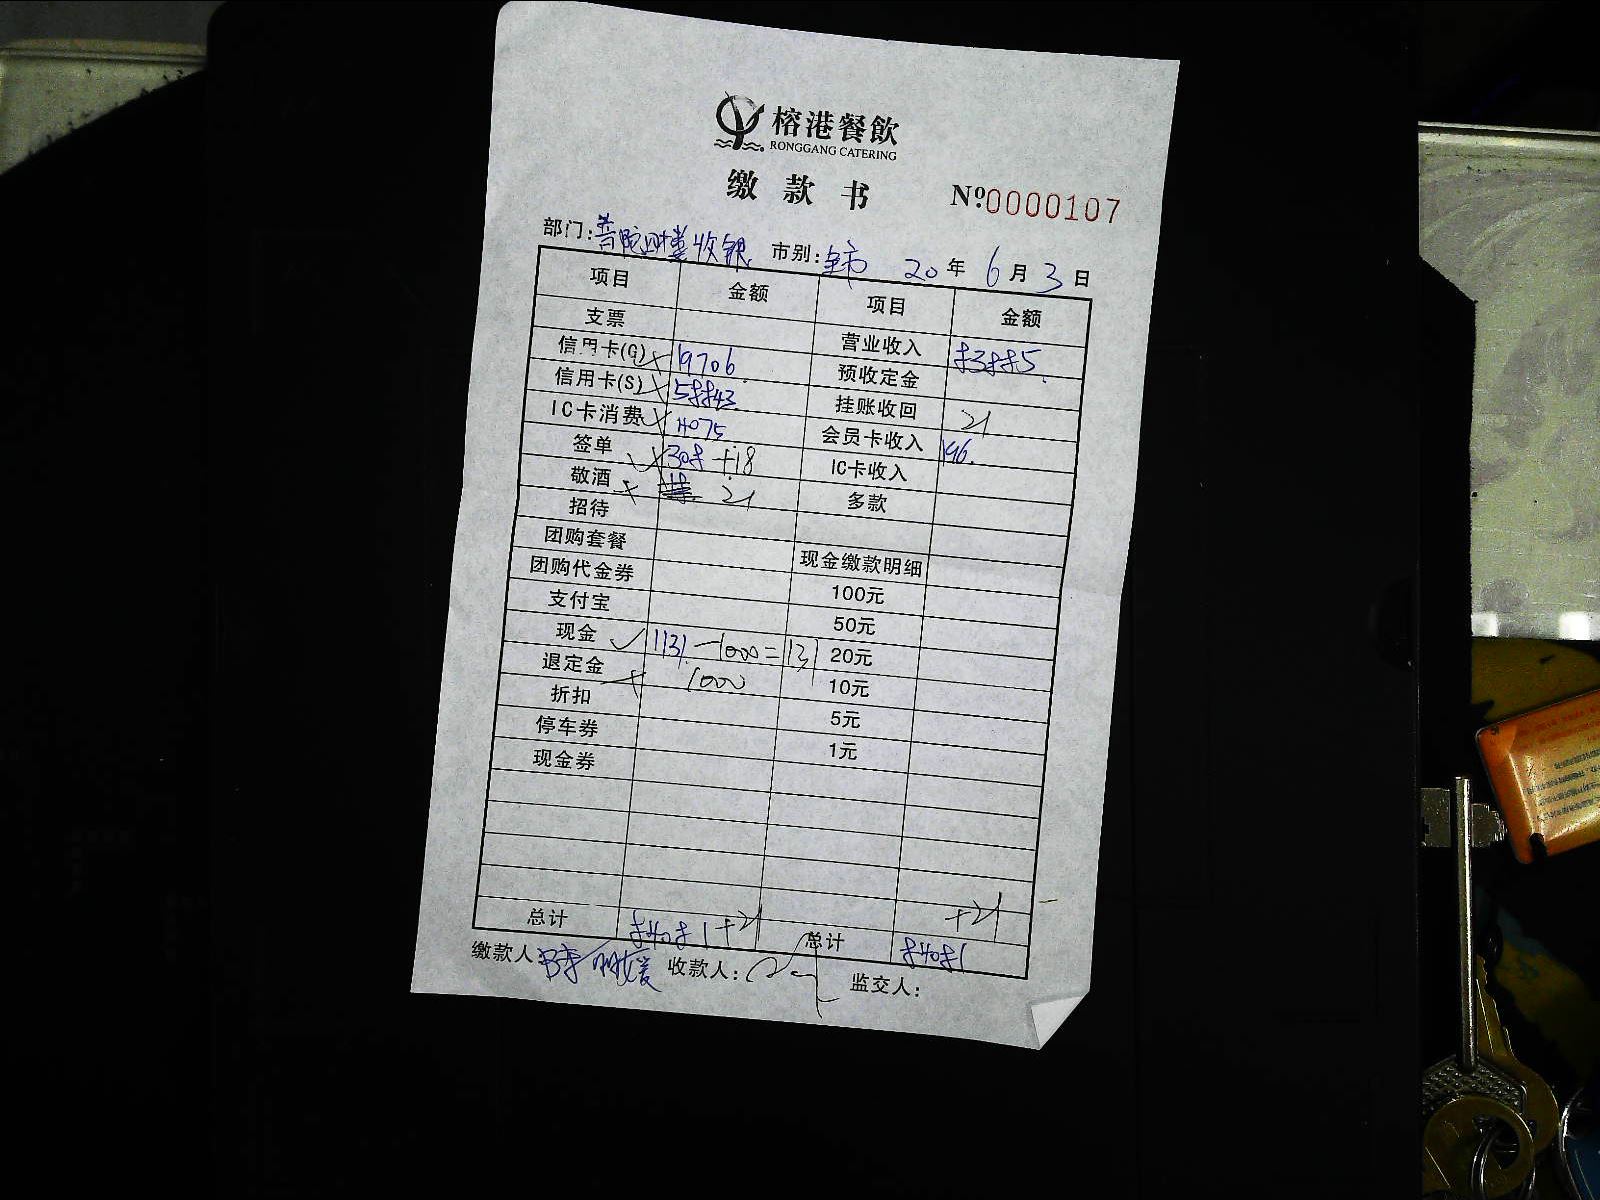 榕港餐飲
RONGGANG CATERING
缴款书 Nº0000107
部门: 收银 市别: 全市 20年 6月 3日
项目 金额 项目 金额
支票 营业收入 83885.
信用卡(G) 19706. 预收定金
信用卡(S) 58843 挂账收回 21
IC卡消费 4075 会员卡收入 196.
签单 308 +18 IC卡收入
敬酒 21 多款
招待
团购套餐 现金缴款明细
团购代金券 100元
支付宝 50元
现金 1131-1000=131 20元
退定金 1000 10元
折扣 5元
停车券 1元
现金券
+21
总计 84081+21 总计 84081
缴款人: 陈明媛 收款人: 监交人: